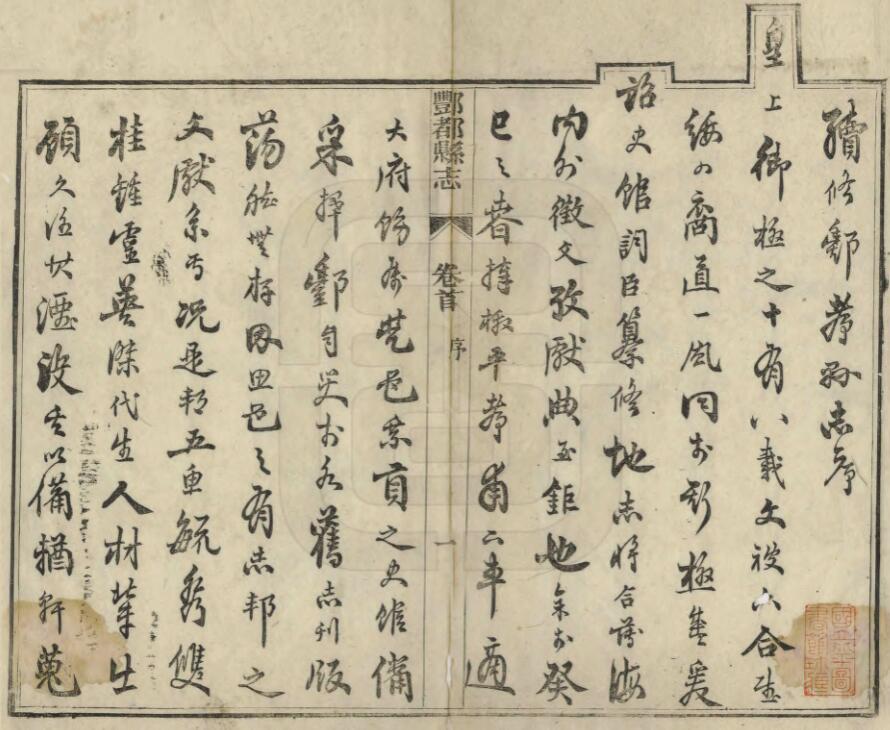 續修酆都縣志序
皇上御極之十有八載文被六合威
綏四裔道一風同於斯極盛爰
詔史館詞臣纂修地志將合薄海
內外徵文攷獻典至鉅也余於癸
巳之春捧檄平都甫下車適
酆都縣志 卷首 序 一
大府飭屬凡邑乘貢之史館備
采擇酆自於水舊志刊版
蕩然無存因思邑之有志邦之
文獻系焉況是邦五魚毓秀雙
桂鍾靈英傑代生人材輩出
顧久任其湮没以備輶軒蒐